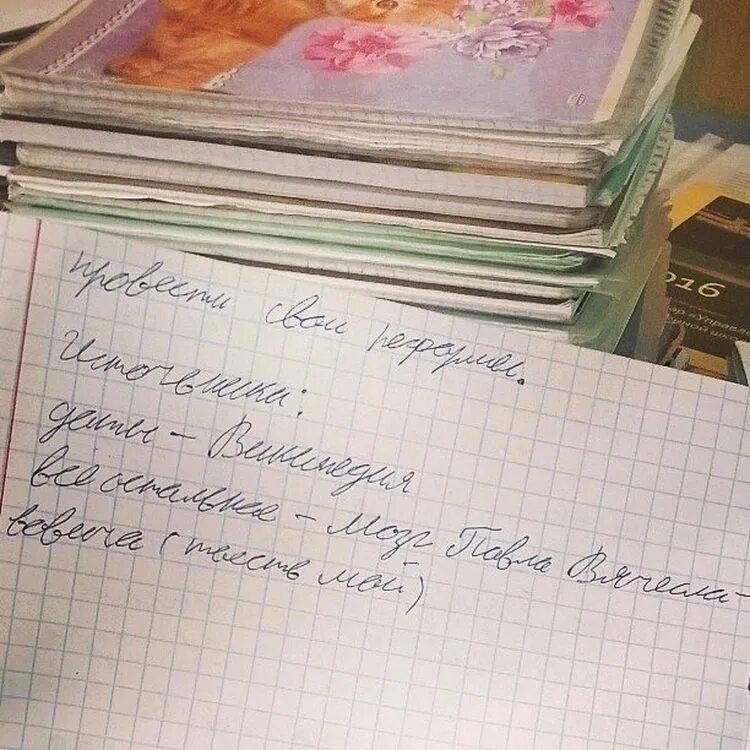 провести свои реформы.
Источники:
даты – Википедия
всё остальное – мозг Павла Вячесла-
вовича (тоесть мой)
016